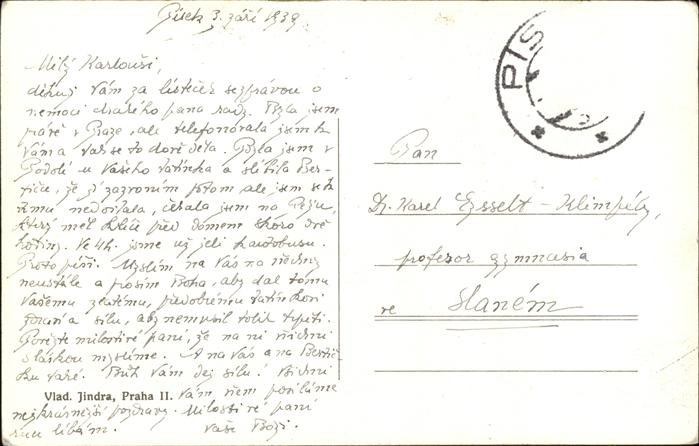 Písek 3. září 1939
Milý Karlouši,
děkuji Vám za lísteček se zprávou o
nemoci drahého pana rady. Byla jsem
právě v Praze, ale telefonovala jsem k
Vám a
Byla jsem v
Podolí u Vašeho tatínka a slíbila Ber-
tičce, že jí zazvoním potom, ale jsem se k
tomu nedostala, čekala jsem na
který měl klíče před domem skoro dvě
hodiny. Ve 4h. jsme už jeli k autobusu.
Proto píši. Myslím na Vás na všechny
neustále a prosím Boha, aby dal tomu
Vašemu zlatému, předobrému tatínkovi
zdraví a sílu, aby nemusil tolik trpěti.
milostivé paní, že na ni všichni
s láskou myslíme. A na Vás a na Bertič-
ku také. Bůh Vám dej sílu! Všichni
Vám všem posíláme
nejkrásnější pozdravy. Milostivé paní
ruce líbám. Vaše
Vlad. Jindra, Praha II.
PÍS
Pan
Dr. Karel Ezsselt - Klimpély,
profesor gymnasia
ve Slaném